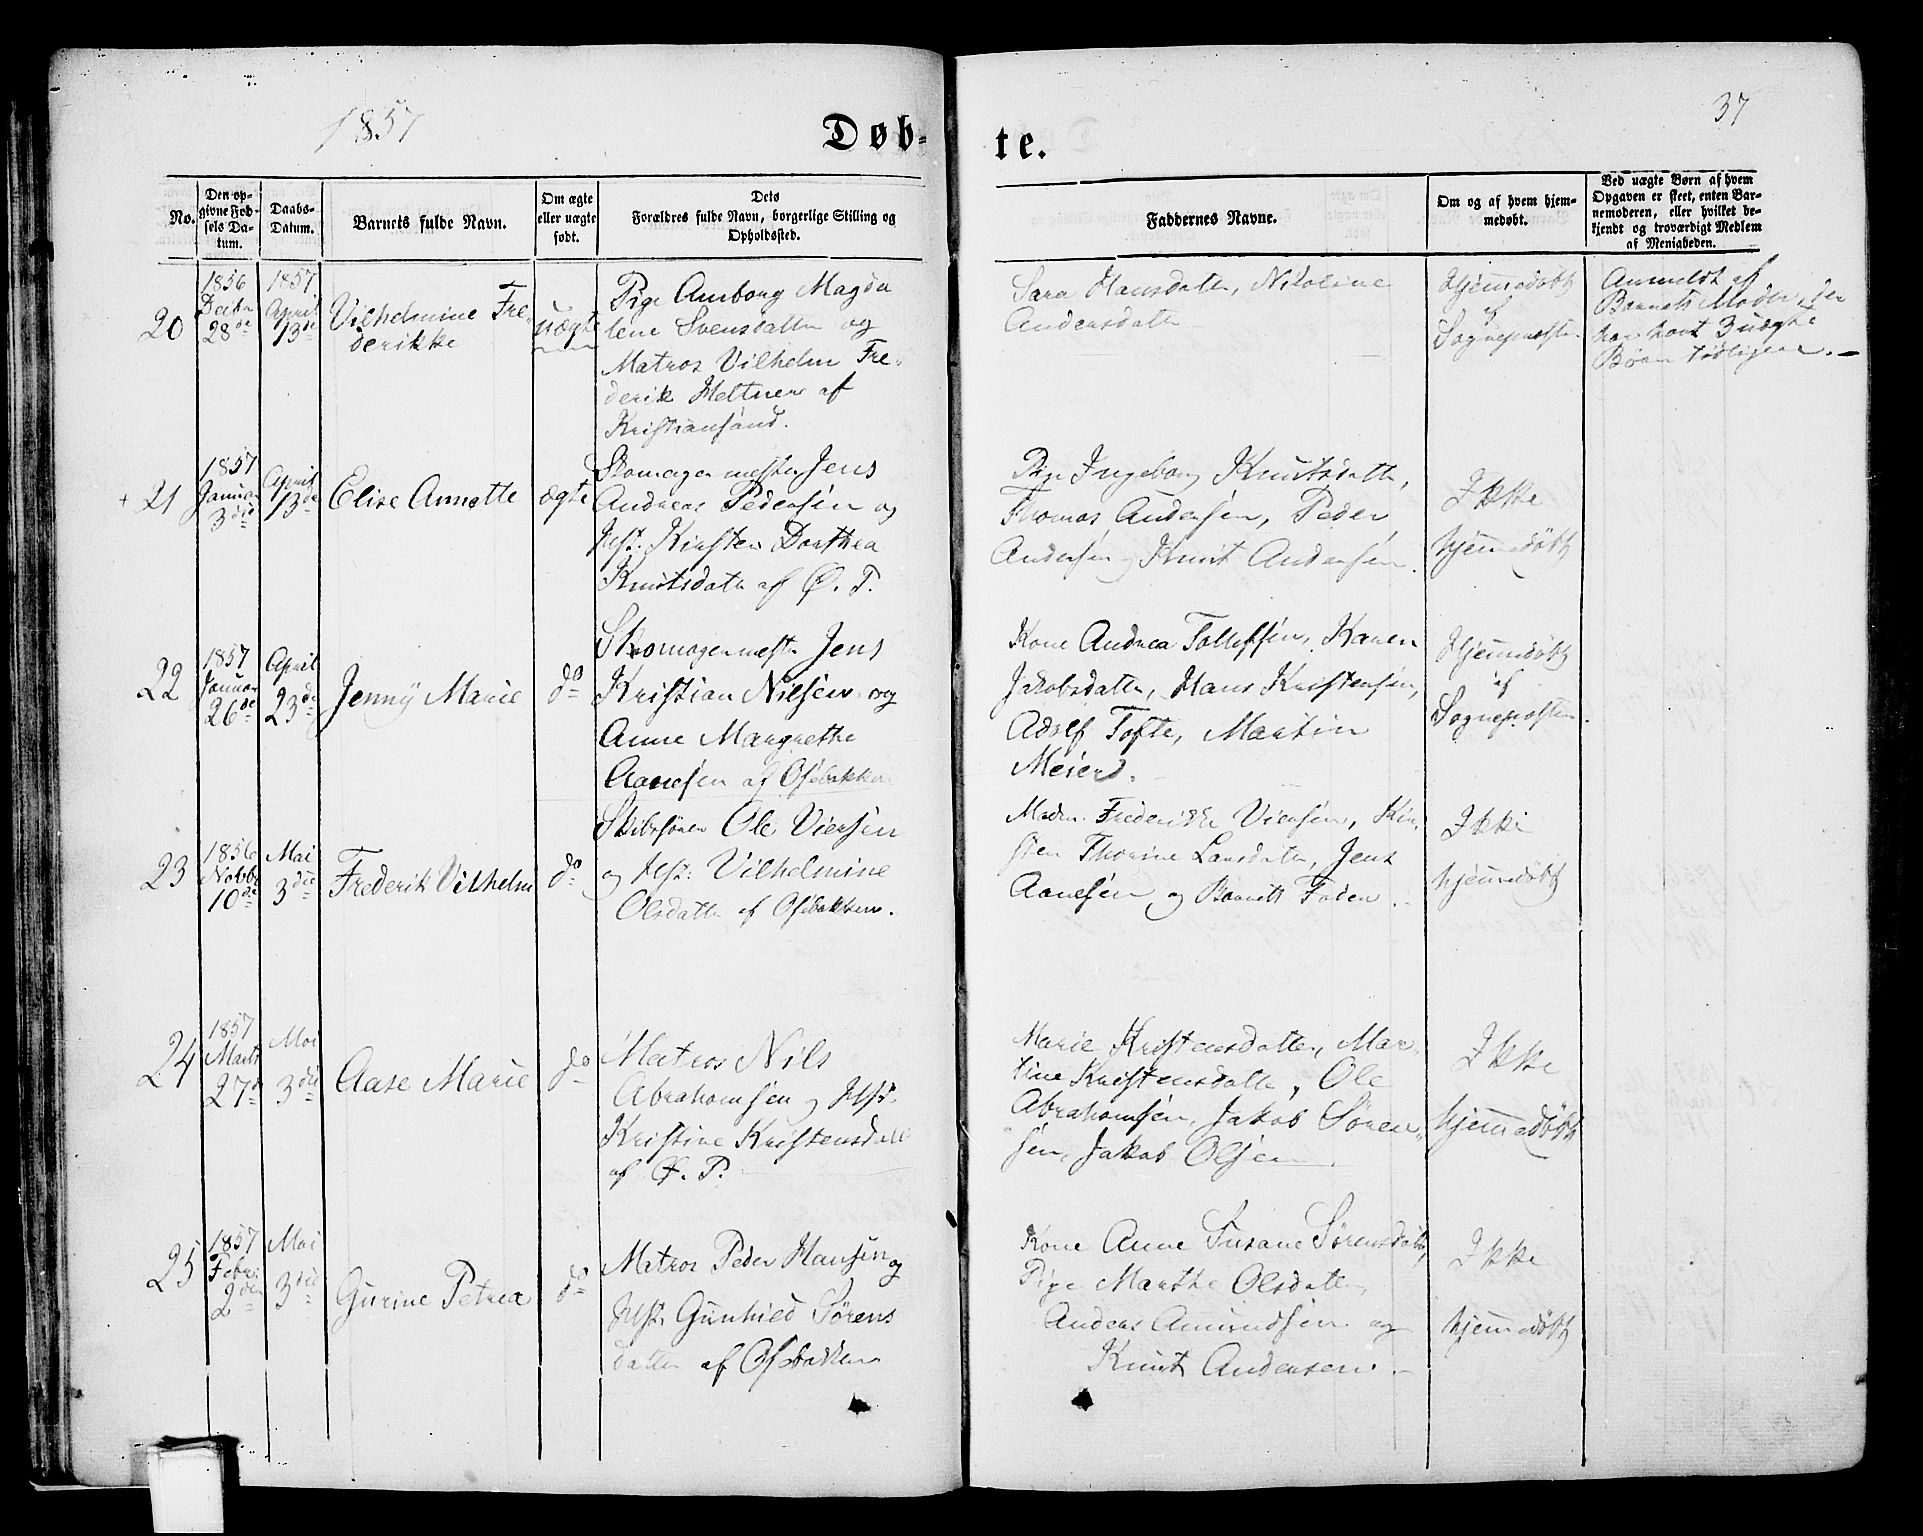 1857
37
Døb-
te.
No.
Den op-
givne Fød-
sels Da-
tum.
Daabs-
Datum.
Barnets fulde Navn.
Om ægte
eller uægte
født.
Dets
Forældres fulde Navn, borgerlige Stilling og
Opholdssted.
Faddernes Navne.
Om og af hvem hjem-
medøbt.
Ved uægte Børn af hvem
Opgaven er skeet, enten Bar-
nemoderen, eller hvilket be-
kjendt og troværdigt Medlem
af Menigheden.
20
1856
Decbr
28de
1857
April
13de
Vilhelmine Fre-
derikke
uægte
Pige Anborg Magda
lene Svensdatter og
Matros Vilhelm Fre-
derik Heltner af
Kristiansand.
Sara Hansdatter, Nikoline
Andersdatter
Hjemmedøbt
af
Sognepresten.
Anmeldt af
Barnets Moder, der
har havt 3 uægte
Børn tidligere. -
+ 21
1857
Januar
3die
April
13de
Elise Annette
ægte
Skomagermester Jens
Andreas Pedersen og
Hst: Kirsten Dorthea
Knutsdatter af Ø. T.
Pige Ingeborg Knutsdatter,
Thomas Andersen, Peder
Andersen og Knut Andersen.
Ikke
hjemmedøbt
22
1857
Januar
26de
April
23de
Jenny Marie
do
Skomagermester Jens
Kristian Nilsen og
Anne Margrethe
Aanesen af Osebakken
Kone Andrea Tollefsen, Karen
Jakobsdatter, Hans Kristensen,
Adolf Tofte, Martin
Meier.
Hjemmedøbt
af
Sognepresten.
23
1856
Novbr
10de
Mai
3die
Frederik Vilhelm
do
Skibsfører Ole Viersen
og Hst: Vilhelmine
Olsdatter af Osebakken.
Madm. Frederikke Viersen, Kir-
sten Thorine Larsdatter, Jens
Aanesen og Barnets Fader.
Ikke
hjemmedøbt
24
1857
Marts
27de
Mai
3die
Aase Marie
do
Matros Nils
Abrahamsen og Hst:
Kristine Kristensdatt
af Ø. P.
Marie Kristensdatter, Mar-
tine Kristensdatter, Ole
Abrahamsen, Jakob Søren-
sen, Jakob Olsen.
Ikke
hjemmedøbt
25
1857
Febr:
2den
Mai
3die
Gurine Petrea
do
Matros Peder Hansen og
Hst: Gunhild Sørens
datter af Osebakken
Kone Anne Susane Sørensdatter,
Pige Marthe Olsdatter,
Anders Amundsen og
Knut Andersen. -
Ikke
hjemmedøbt